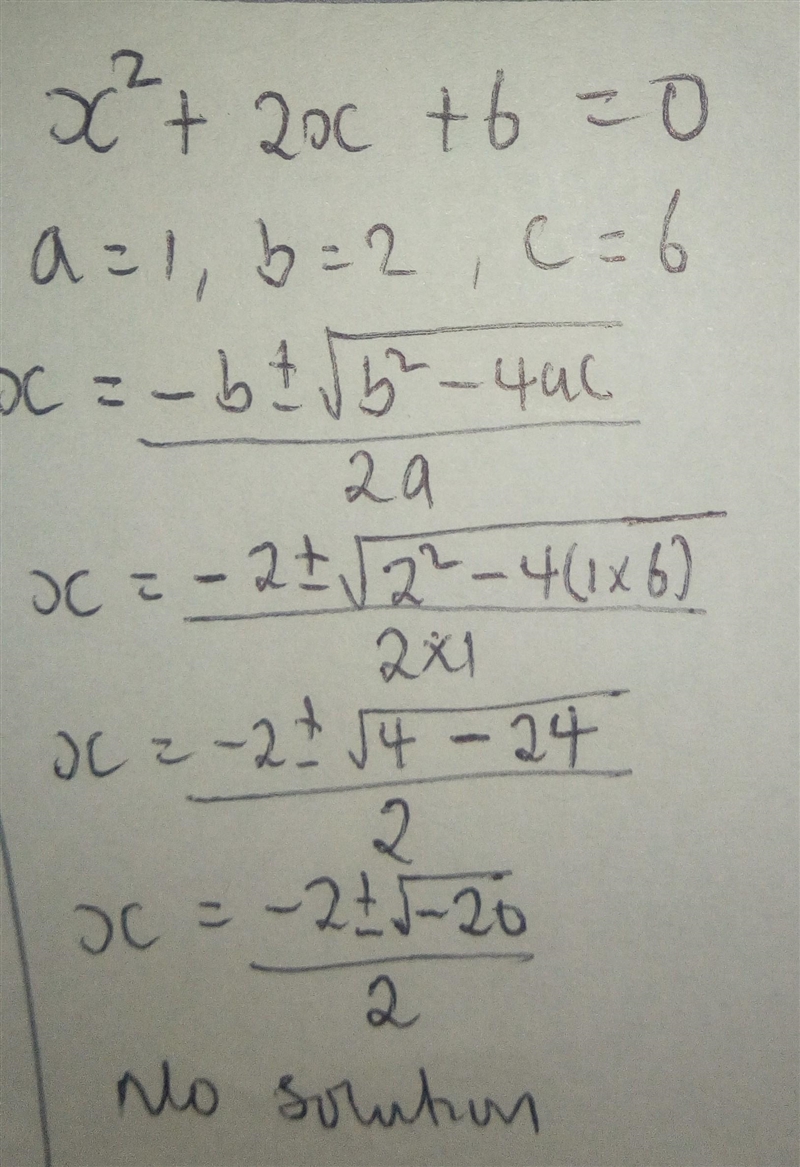 x² + 2x + 6 = 0
a = 1, b = 2, c = 6
x = (-b ± √(b² - 4ac)) / 2a
x = (-2 ± √(2² - 4(1 × 6))) / 2×1
x = (-2 ± √(4 - 24)) / 2
x = (-2 ± √(-20)) / 2
No solution